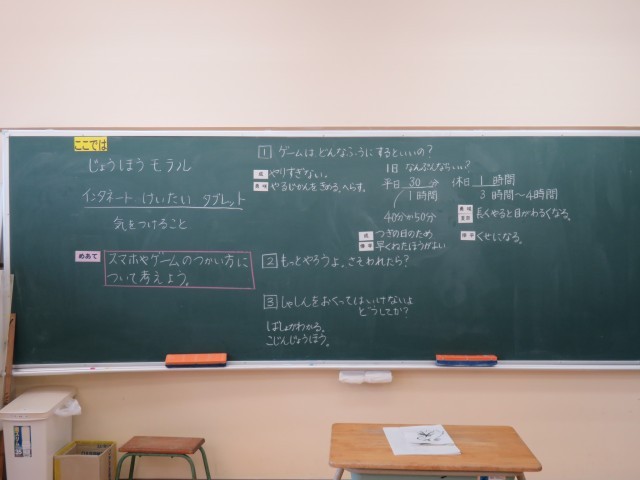 ここでは
じょうほうモラル
インタネート けいたい タブレット
気をつけること
めあて
スマホやゲームのつかい方に
ついて考えよう。
1 ゲームは どんなふうにするといいの?
やりすぎない。
やるじかんをきめる、へらす。
1日 なんぷんならいい?
平日 30分
1時間
40分か50分
休日 1時間
3時間〜4時間
長くやると目がわるくなる。
つぎの日のため
早くねたほうがよい
くせになる。
2 もっとやろうよ。さそわれたら?
3 しゃしんをおくってはいけないよ
どうしてか?
ばしょがわかる。
こじんじょうほう。